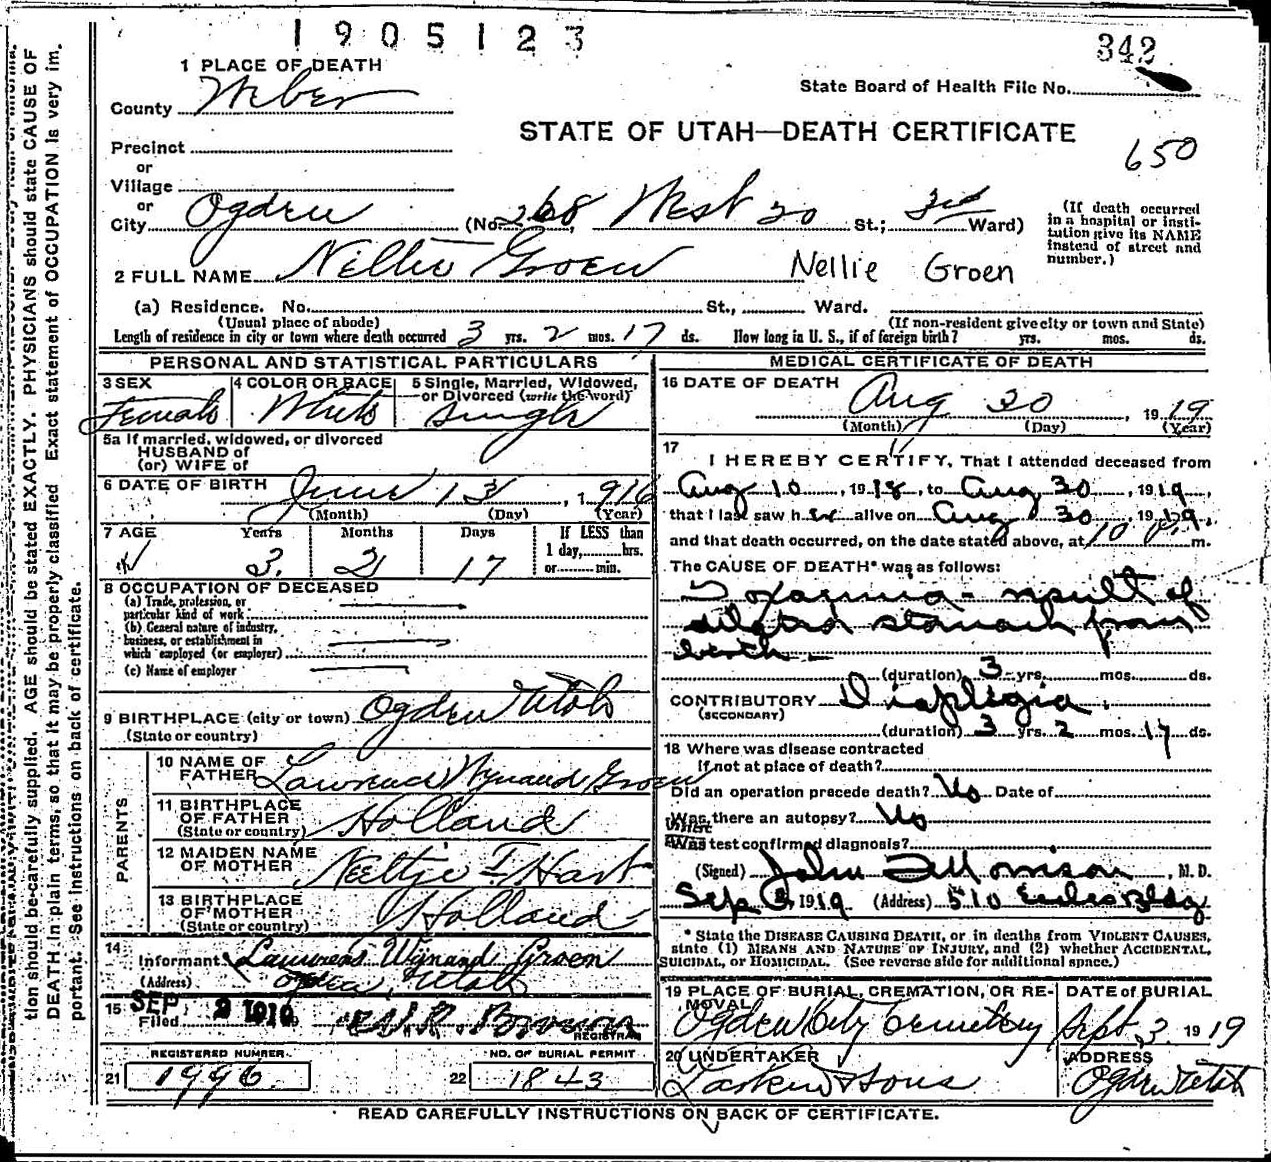 1905123
342
1 PLACE OF DEATH
County Weber
State Board of Health File No.
STATE OF UTAH—DEATH CERTIFICATE
650
Precinct
or
Village
or
City Ogden (No. 268, West 20 St.; 3rd Ward)
(If death occurred in a hospital or insti-
tution give its NAME
instead of street and
number.)
2 FULL NAME Nellie Groen Nellie Groen
(a) Residence. No. St., Ward.
(Usual place of abode) (If non-resident give city or town and State)
Length of residence in city or town where death occurred 3 yrs. 2 mos. 17 ds. How long in U. S., if of foreign birth? yrs. mos. ds.
PERSONAL AND STATISTICAL PARTICULARS
3 SEX 4 COLOR OR RACE 5 Single, Married, Widowed,
or Divorced (write the word)
Female White Single
5a If married, widowed, or divorced
HUSBAND of
(or) WIFE of
6 DATE OF BIRTH June 13, 1916
(Month) (Day) (Year)
7 AGE Years Months Days If LESS than
1 day, hrs.
or min.
3 2 17
8 OCCUPATION OF DECEASED
(a) Trade, profession, or
particular kind of work
(b) General nature of industry,
business, or establishment in
which employed (or employer)
(c) Name of employer
9 BIRTHPLACE (city or town) Ogden Utah
(State or country)
PARENTS
10 NAME OF
FATHER Lawrence Wynand Groen
11 BIRTHPLACE
OF FATHER
(State or country) Holland
12 MAIDEN NAME
OF MOTHER Neeltje T Hart
13 BIRTHPLACE
OF MOTHER
(State or country) Holland
14
Informant Lawrence Wynand Groen
(Address) Ogden, Utah
15
Filed SEP 2 1919
REGISTRAR
REGISTERED NUMBER NO. OF BURIAL PERMIT
21 1996 22 1843
MEDICAL CERTIFICATE OF DEATH
16 DATE OF DEATH Aug 30, 1919
(Month) (Day) (Year)
17
I HEREBY CERTIFY, That I attended deceased from
Aug 10, 1918, to Aug 30, 1919,
that I last saw her alive on Aug 30, 1919,
and that death occurred, on the date stated above, at 10 P m.
The CAUSE OF DEATH* was as follows:
Toxaemia - result of
dilated stomach from
birth -
(duration) 3 yrs. mos. ds.
CONTRIBUTORY Displegia
(SECONDARY)
(duration) 3 yrs. 2 mos. 17 ds.
18 Where was disease contracted
If not at place of death?
Did an operation precede death? No Date of
Was there an autopsy? No
What test confirmed diagnosis?
(Signed) John Morrison, M. D.
Sep 2, 1919 (Address) 510 Eccles Bldg
* State the DISEASE CAUSING DEATH, or in deaths from VIOLENT CAUSES,
state (1) MEANS AND NATURE OF INJURY, and (2) whether ACCIDENTAL,
SUICIDAL, or HOMICIDAL. (See reverse side for additional space.)
19 PLACE OF BURIAL, CREMATION, OR RE-
MOVAL DATE of BURIAL
Ogden City Cemetery Sept 3 1919
20 UNDERTAKER ADDRESS
Larkin & Sons Ogden Utah
READ CAREFULLY INSTRUCTIONS ON BACK OF CERTIFICATE.
tion should be carefully supplied. AGE should be stated EXACTLY. PHYSICIANS should state CAUSE OF
DEATH in plain terms, so that it may be properly classified. Exact statement of OCCUPATION is very im-
portant. See instructions on back of certificate.